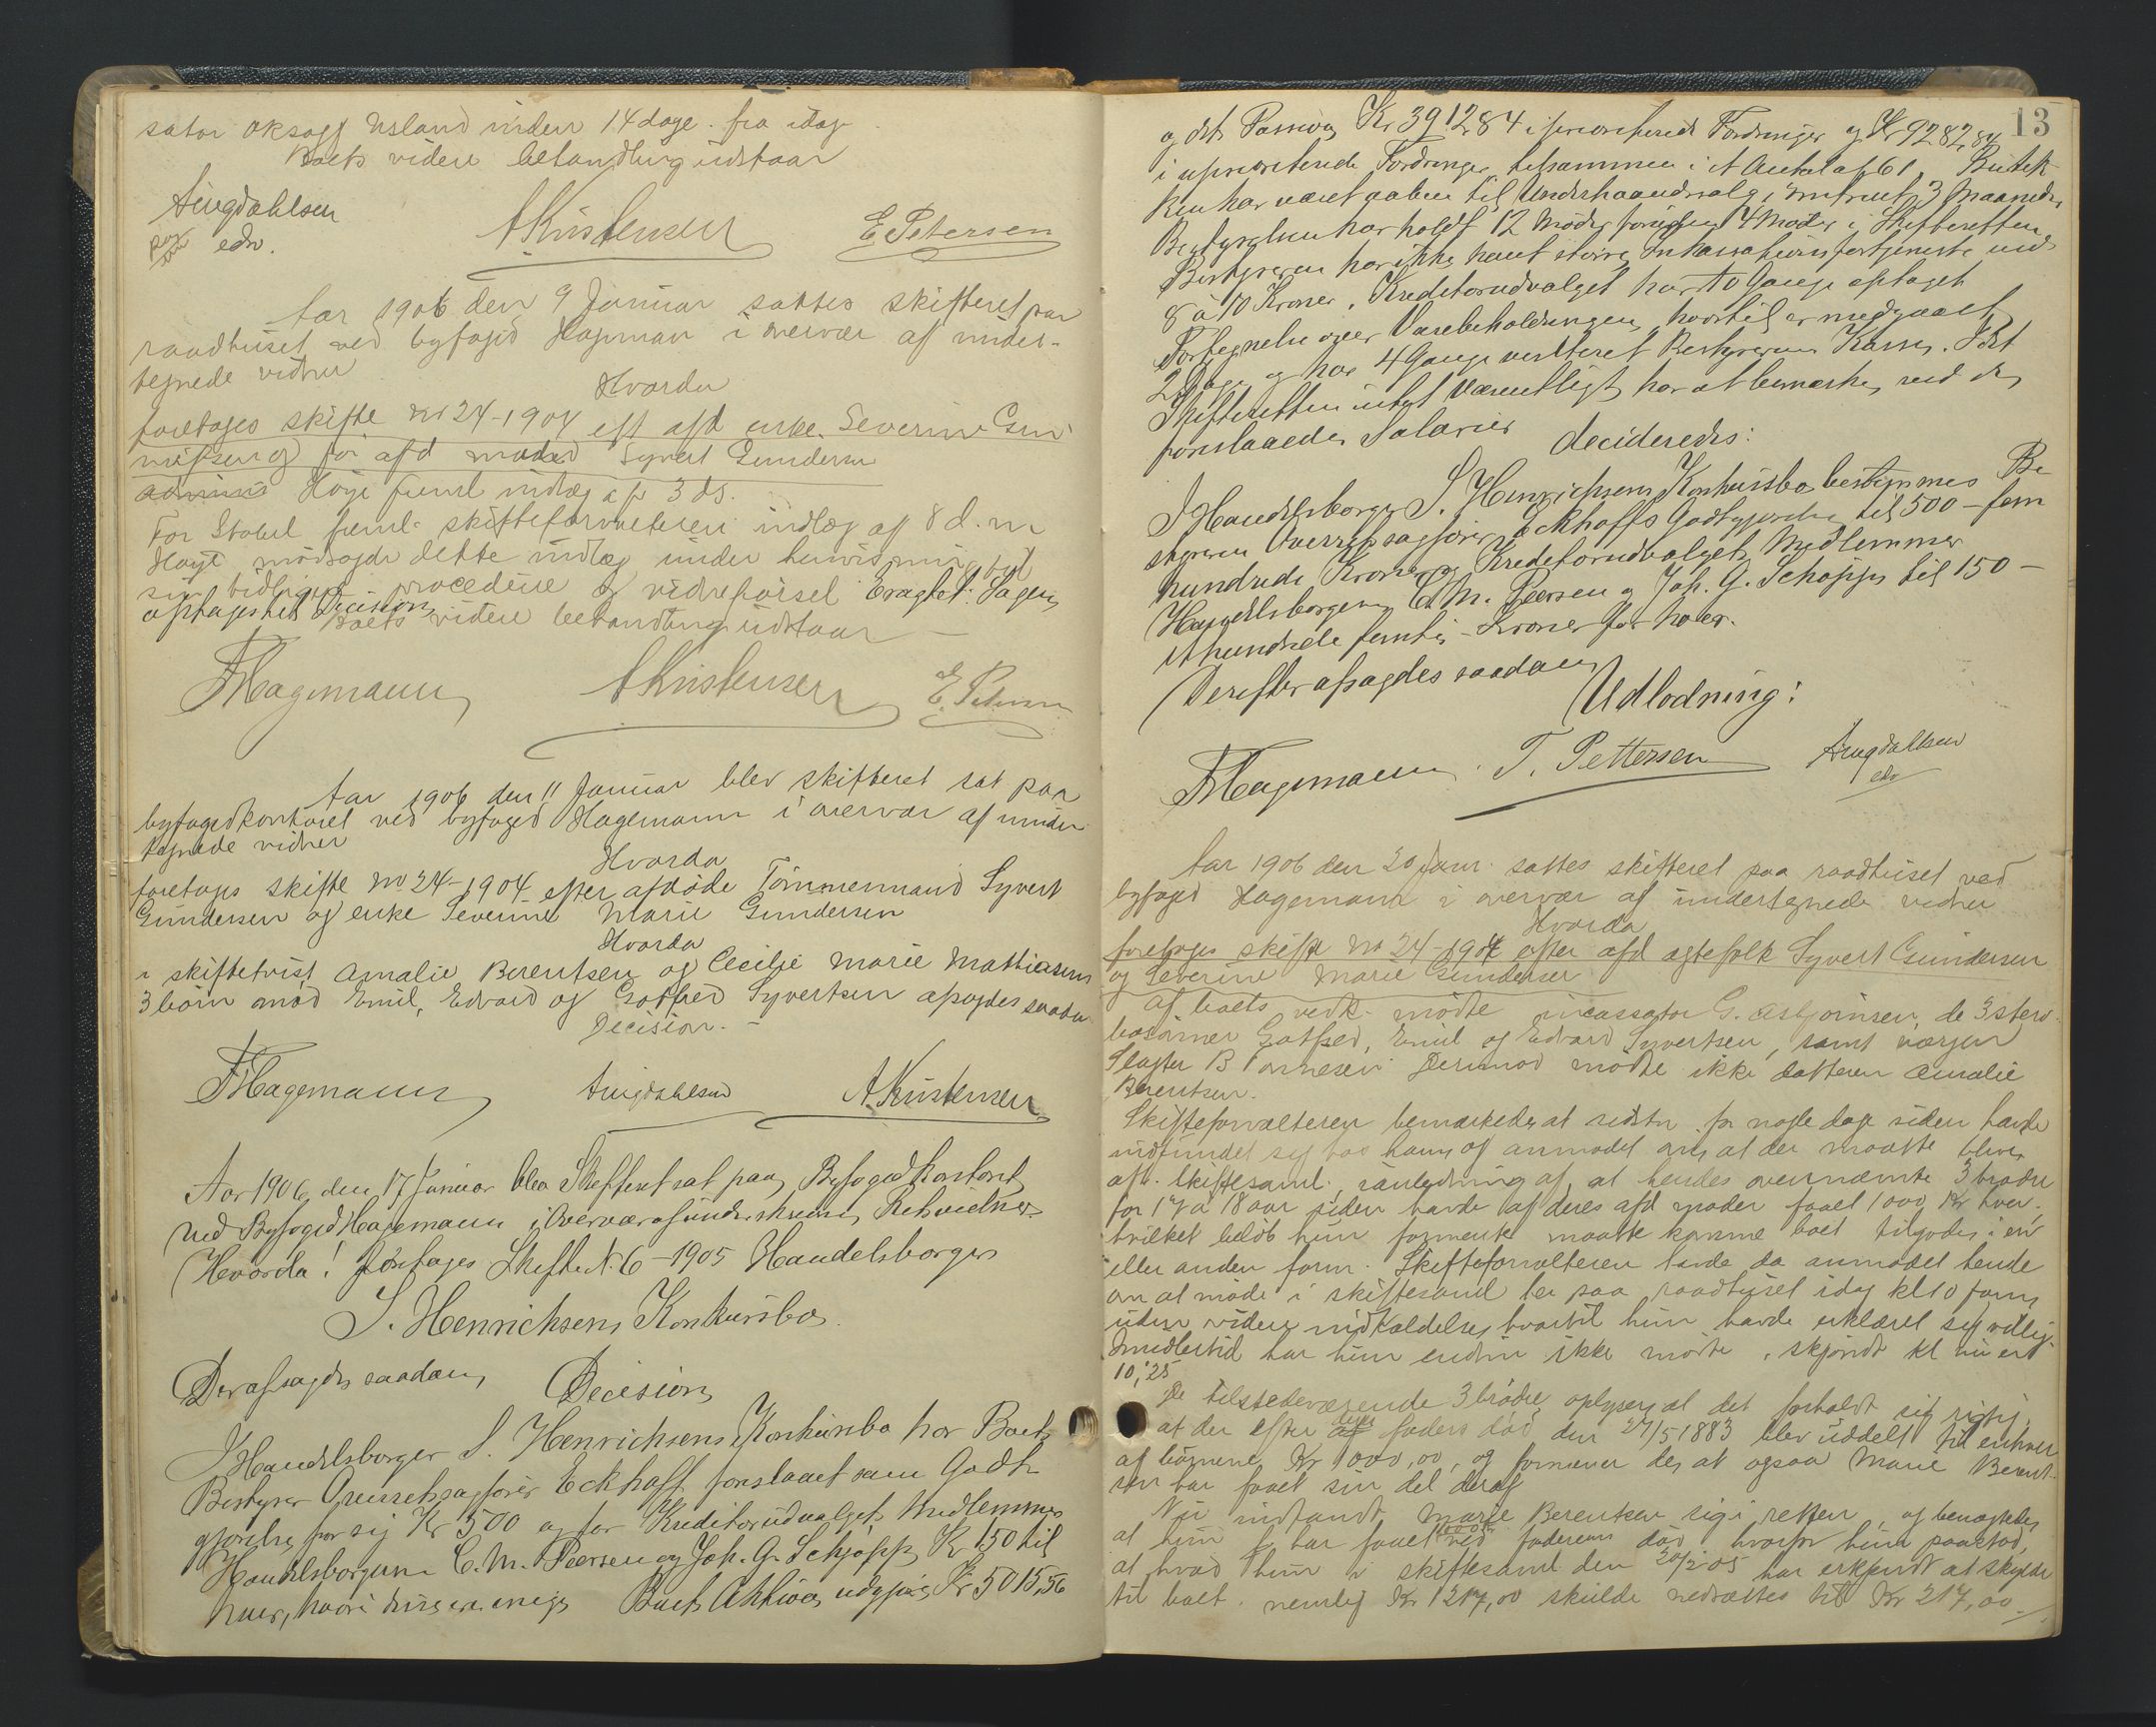 sator Oksagg Usland inden 14 dage fra idag
Boets videre behandling udstaar
Aingdahlsen
edv.
A Kristensen
E Petersen
Aar 1906 den 9 Januar sattes skifteret paa
raadhuset ved byfoged Hageman i overvær af under-
tegnede vidner
Hvorda
foretoges skifte No 24-1904 eft afd enke Severine Gun
og for afd mand Syvert Gundersen
Høye freml indlæg af 3 ds.
For Stabel freml. skifteforvalteren indlæg af 8 d. m
Høye modsagde dette indlæg under henvisning til
sin tidligere procedure og vidneførsel Eragtet: Sagen
optages til Decision
Boets videre behandling udstaar
FHagemann
A Kristensen
E. Petersen
Aar 1906 den 11 Januar blev skifteret sat paa
byfogedkontoret ved byfoged Hagemann i overvær af under
tegnede vidner
Hvorda
foretoges skifte No 24-1904 efter afdøde Tømmermand Syvert
Gundersen og enke Severine Marie Gundersen
Hvorda
i skiftetvist Amalie Berentsen og Cecilie Marie Mathiasens
3 børn mod Emil, Edvard og Gotfred Syvertsen afsagdes saadan
Decision. -
FHagemann
Aingdahlsen
A. Kristensen
Aar 1906 den 17 Januar blev Skifteret sat paa Byfogedkontoret
ved Byfoged Hagemann i Overvær af underskrevne Retsvidner
Hvorda! foretoges Skifte N. 6-1905 Handelsborger
S. Henrichsens Konkursbo.
Der afsagdes saadan
Decision
I Handelsborger S. Henrichsens Konkursbo har Boets
Bestyrer Overretssagfører Eckhoff foreslaaet som Godt-
gjørelse for sig Kr 500 og for Kreditorudvalgets Medlemmer
Handelsborgerne C. M. Peersen og Joh. G. Schjøpp Kr 150 til
hver, hvori disse er enige Boets Aktiva udgjør Kr 5015,56
13
og dets Passiva Kr 3912,84 i prioriterede Fordringer og Kr 9282,84
i uprioriterede Fordringer tilsammen i et Antal af 61. Butik-
ken har været aaben til Underhaandssalg i omtrent 3 Maaneder
Bestyrelsen har holdt 12 Møder foruden 4 Møder i Skifteretten
Bestyreren har ikke havt større Inkassationsfortjeneste end
8 à 10 Kroner. Kreditorudvalget har to Gange optaget
Fortegnelse over Varebeholdningen, hvortil er medgaaet
2 Dage og har 4 Gange visiteret Bestyrerens Kasse. Idet
Skifteretten intet Væsentligt har at bemærke ved de
foreslaaede Salarier
decideredes:
I Handelsborger S. Henrichsens Konkursbo bestemmes Be
styreren Overretssagfører Eckhoffs Godtgjørelse til 500 - fem
hundrede Kroner og Kreditorudvalgets Medlemmer
Handelsborgerne C. M. Peersen og Joh. G. Schøpps til 150 -
et hundrede femti - Kroner for hver.
Derefter afsagdes saadan
Udlodning:
FHagemann
T. Pettersen
Aingdahlsen
edv
Aar 1906 den 20 Janr. sattes skifteret paa raadhuset ved
byfoged Hagemann i overvær af undertegnede vidner
Hvorda
foretoges skifte No 24-1904 efter afd ægtefolk Syvert Gundersen
og Severine Marie Gundersen
Af boets vedk. mødte incassator G. Asbjørnsen, de 3 sterv
bosønner Gotfred, Emil og Edvard Syvertsen, samt værgen
Slagter B Tønnesen Derimod mødte ikke datteren Amalie
Berentsen.
Skifteforvalteren bemærkede, at sidstn. for nogle dage siden havde
indfundet sig hos ham og anmodet om, at der maatte blive
afh. skiftesaml. i anledning af, at hendes ovennævnte 3 brødre
for 17 a 18 aar siden havde af deres afd moder faaet 1000 Kr hver,
hvilket beløb hun formente maatte komme boet tilgode i en
eller anden form. Skifteforvalteren havde da anmodet hende
om at møde i skiftesaml her paa raadhuset idag kl 10 form
uden videre indkaldelse, hvortil hun havde erklæret sig villig.
Imidlertid har hun endnu ikke mødt, skjøndt kl nu er
10,25
De tilstedeværende 3 brødre oplyser, at det forholdt sig rigtig,
at der efter deres faders død den 24/5 1883 blev uddelt til enhver
af børnene Kr 1000,00, og formener de, at ogsaa Marie Berent-
sen har faaet sin del deraf
Nu indfandt Marie Berentsen sig i retten, og benægtede,
at hun har faaet 1000 ved faderens død, hvorfor hun paastod,
at hvad hun i skiftesaml den 20/2 05 har erkjendt at skylde
til boet. nemlig Kr 1217,00 skulde nedsættes til Kr 217,00.